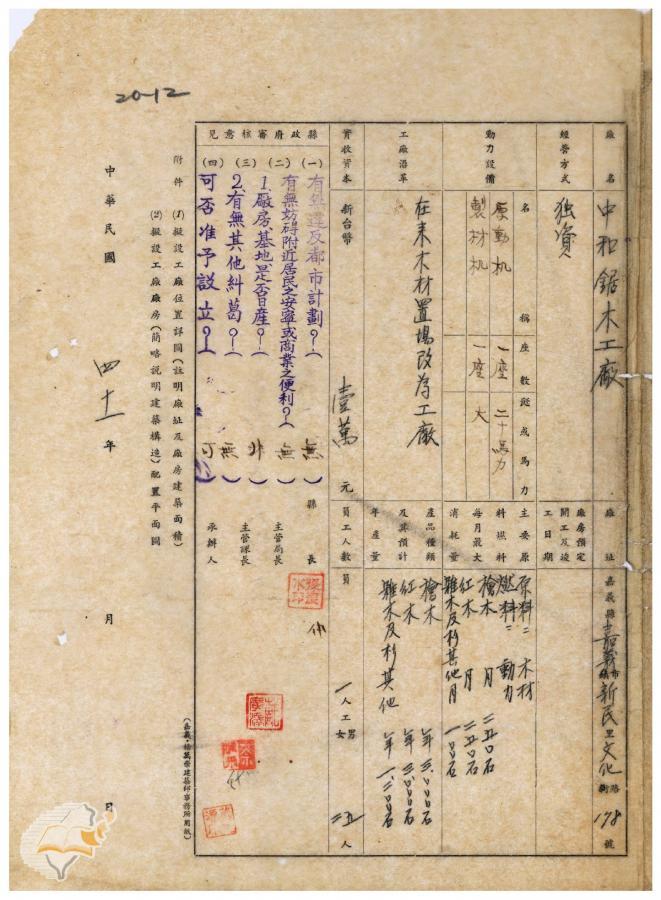 20-12
廠名 中和鋸木工廠
廠址 嘉義縣嘉義市鎮新民里文化路街178號
經營方式 独資
廠房預定開工及竣工日期
動力設備
名稱 座數 或馬力
原動机 一座 二十馬力
製材机 一座 大
主要原料燃料每月最大消耗量
原料：木材
燃料：動力
檜木 月 二五〇石
紅木 月 二五〇石
雜木及杉其他月 一〇〇石
工廠沿革 在来木材置場改為工廠
產品種類及其預計年產量
檜木 年 三、〇〇〇石
紅木 年 三、〇〇〇石
雜木及杉其他 年 一、二〇〇石
實收資本 新台幣 壹萬元
員工人數 員 一人 工 男 女 二五人
縣政府審核意見
(一)有無違反都市計劃？(無)
(二)有無妨碍附近居民之安寧或商業之便利？(無)
(三)1.廠房.基地是否日產？(非)
2.有無其他糾葛？(無)
(四)可否准予設立？(可)
縣長
主管局長
主管課長
承辦人
附件 (1)擬設工廠位置詳圖(註明廠址及廠房建築面積)
(2)擬設工廠廠房(簡略說明建築構造)配置平面圖
中華民國 四十一年 月 日